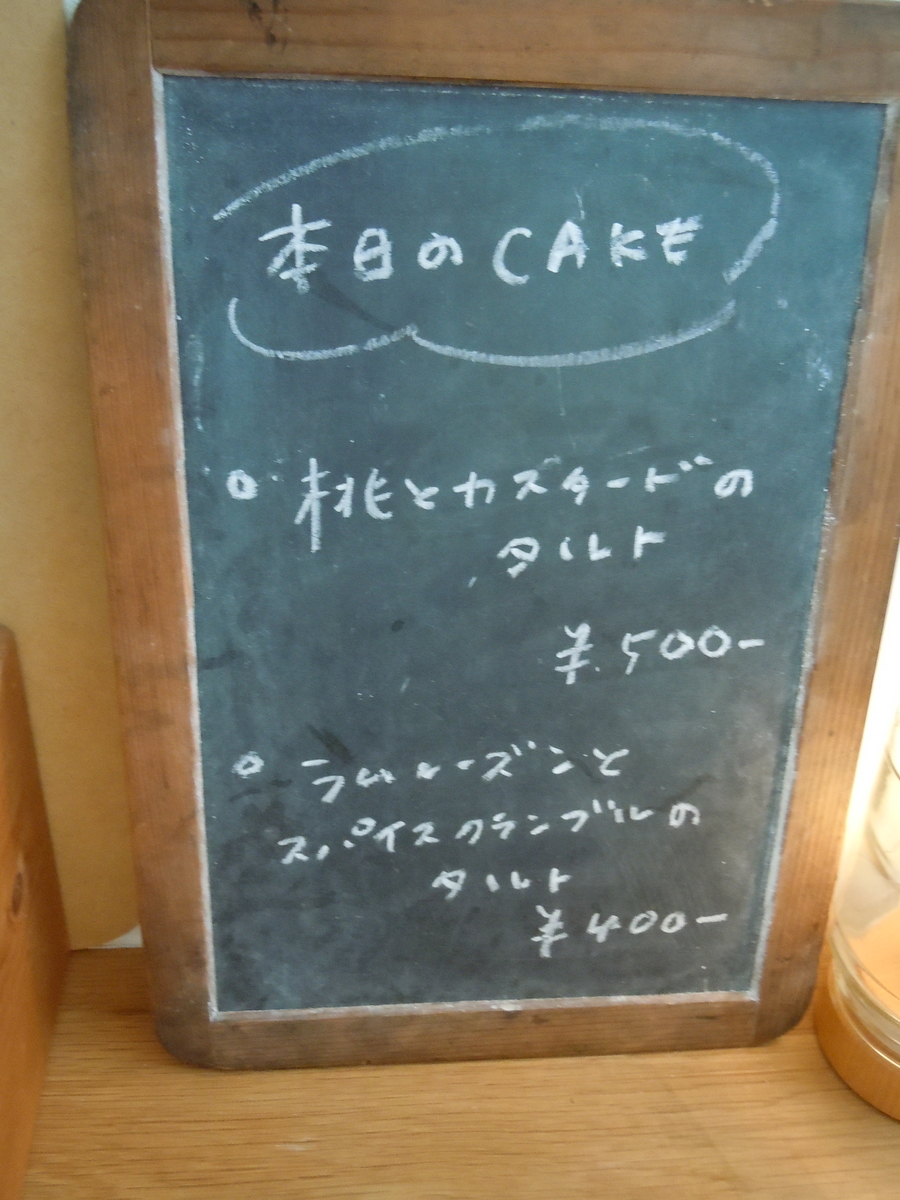 本日のCAKE
○ 桃とカスタードの
タルト
¥500-
○ ラムレーズンと
スパイスクランブルの
タルト
¥400-